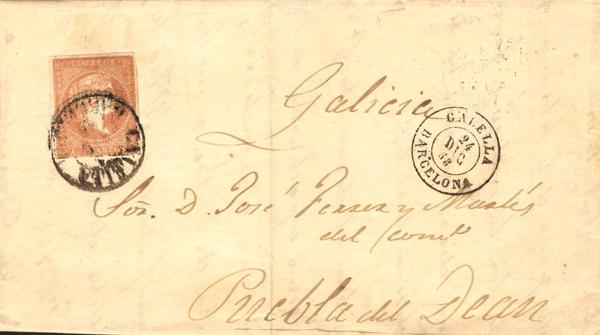 CORREOS
CALELLA
Galicia
CALELLA
24
DIC
58
BARCELONA
Sor. D. José Ferrer y Murtés
del com.o
Puebla del Dean